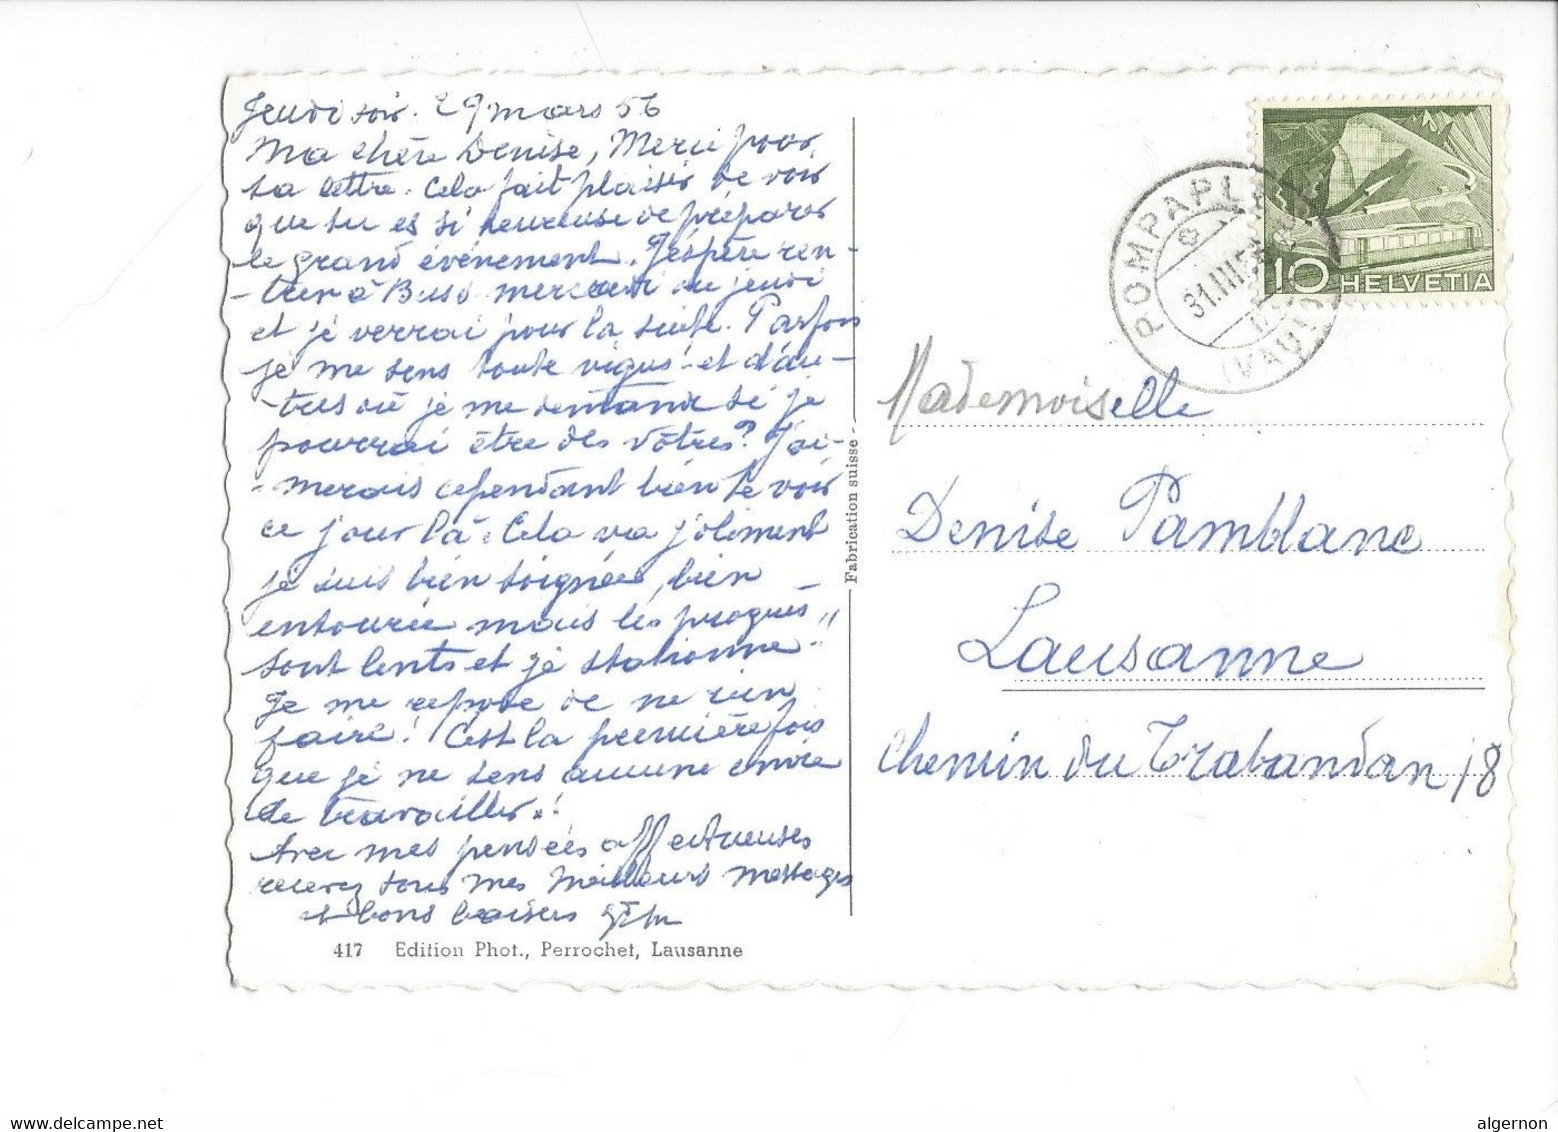 Jeudi soir. 29 mars 56
Ma chère Denise, Merci pour
ta lettre. Cela fait plaisir de voir
que tu es si heureuse de préparer
le grand événement. J'espère ren-
-trer à mercredi ou jeudi
et je verrai pour la suite. Parfois
je me sens toute et d'au-
-tres où je me demande si je
pourrai être des vôtres? J'ai-
-merais cependant bien te voir
ce jour là. Cela va joliment
je suis bien soignée, bien
entourée mais les progrès
sont lents et je stationne!!
Je me repose de ne rien
faire! C'est la première fois
que je ne sens aucune envie
de travailler!
Avec mes pensées affectueuses
recevez tous mes meilleurs messages
et bons baisers
417 Edition Phot., Perrochet, Lausanne
Fabrication suisse
POMPAPLES
31.III.56
(VAUD)
10 HELVETIA
Mademoiselle
Denise Pamblanc
Lausanne
Chemin du Trabandan 18
delcampe.net
algernon